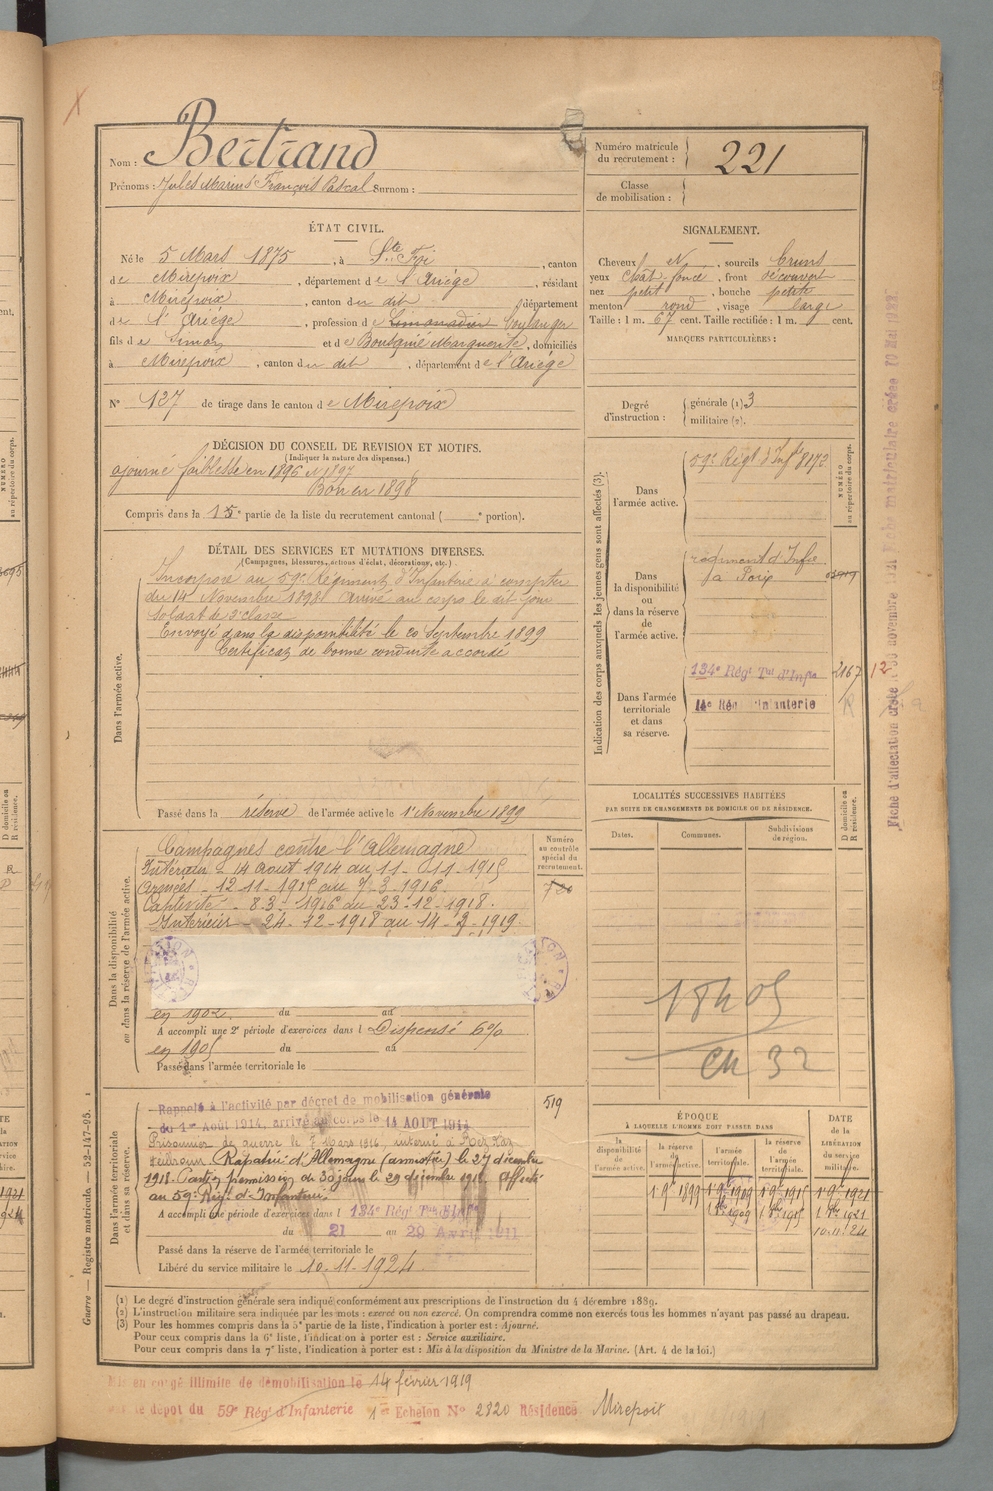 Nom : Bertrand
Prénoms : Jules Marius François Pascal Surnom :
Numéro matricule du recrutement : 221
Classe de mobilisation :
ÉTAT CIVIL.
Né le 5 Mars 1875, à Ste Foi, canton
de Mirepoix, département de l'Ariége, résidant
à Mirepoix, canton du dit département
de l'Ariége, profession de Limonadier boulanger
fils de Simon et de Bousquié Marguerite, domiciliés
à Mirepoix, canton du dit, département de l'Ariége
N° 127 de tirage dans le canton de Mirepoix
SIGNALEMENT.
Cheveux N, sourcils bruns
yeux chat. foncé, front découvert
nez petit, bouche petite
menton rond, visage large
Taille : 1 m. 67 cent. Taille rectifiée : 1 m. cent.
MARQUES PARTICULIÈRES :
Degré d'instruction : générale (1) 3
militaire (2).
DÉCISION DU CONSEIL DE REVISION ET MOTIFS.
(Indiquer la nature des dispenses.)
ajourné faiblesse en 1896 et 1897
Bon en 1898
Compris dans la 1 5e partie de la liste du recrutement cantonal ( e portion).
DÉTAIL DES SERVICES ET MUTATIONS DIVERSES.
(Campagnes, blessures, actions d'éclat, décorations, etc.)
Dans l'armée active.
Incorporé au 59e Régiment d'Infanterie à compter
du 14 Novembre 1898. Arrivé au corps le dit jour
soldat de 2e classe
Envoyé dans la disponibilité le 20 Septembre 1899
Certificat de bonne conduite accordé
Passé dans la réserve de l'armée active le 1er Novembre 1899
Indication des corps auxquels les jeunes gens sont affectés (3).
NUMÉRO au répertoire du corps.
Dans l'armée active.
59e Régt d'Infie 8172
Dans la disponibilité ou dans la réserve de l'armée active.
régiment d'Infie
Dans l'armée territoriale et dans sa réserve.
134e Régt Tal d'Infie 2167 12
14e Rég d'Infanterie
Fiche d'affectation créée 30 novembre 1921 Fiche matriculaire créée 10 Mai 1922
LOCALITÉS SUCCESSIVES HABITÉES
PAR SUITE DE CHANGEMENTS DE DOMICILE OU DE RÉSIDENCE.
Dates. Communes. Subdivisions de région.
D domicile ou R résidence.
Dans la disponibilité ou dans la réserve de l'armée active.
Numéro au contrôle spécial du recrutement.
Campagnes contre l'Allemagne
Intérieur - 14 aout 1914 au 11-11-1915
Armées - 12-11-1915 au 7-3-1916.
Captivité - 8-3-1916 au 23-12-1918.
Intérieur - 24-12-1918 au 14-2-1919.
en 1902 du au
A accompli une 2e période d'exercices dans l Dispensé 6%
en 1905 du au
Passé dans l'armée territoriale le
Ch 32
Dans l'armée territoriale et dans sa réserve.
519
Rappelé à l'activité par décret de mobilisation générale
du 1er Août 1914, arrivé au corps le 14 AOUT 1914
Prisonnier de guerre le 7 Mars 1916, interné à
Heilbronn. Rapatrié d'Allemagne (armistice) le 27 décembre
1918. Parti en permission de 30 jours le 29 décembre 1918. Affecté
au 59e Rég. d'Infanterie.
A accompli une période d'exercices dans l 134e Régt Tal d'Infie
du 21 au 29 Avril 1911
Passé dans la réserve de l'armée territoriale le
Libéré du service militaire le 10-11-1924
ÉPOQUE
À LAQUELLE L'HOMME DOIT PASSER DANS
la disponibilité de l'armée active. la réserve de l'armée active. l'armée territoriale. la réserve de l'armée territoriale. DATE de la LIBÉRATION du service militaire.
1 9e 1899 1 9e 1909 1 9e 1915 1 9e 1921
1 1909 1 1915 1 1921
10.11.24
(1) Le degré d'instruction générale sera indiqué conformément aux prescriptions de l'instruction du 4 décembre 1889.
(2) L'instruction militaire sera indiquée par les mots : exercé ou non exercé. On comprendra comme non exercés tous les hommes n'ayant pas passé au drapeau.
(3) Pour les hommes compris dans la 5e partie de la liste, l'indication à porter est : Ajourné.
Pour ceux compris dans la 6e liste, l'indication à porter est : Service auxiliaire.
Pour ceux compris dans la 7e liste, l'indication à porter est : Mis à la disposition du Ministre de la Marine. (Art. 4 de la loi.)
Guerre — Registre matricule. — 52-147-95. 1
Mis en congé illimité de démobilisation le 14 février 1919
par le dépôt du 59e Régt d'Infanterie 1er Echelon N° 2820 Résidence Mirepoix